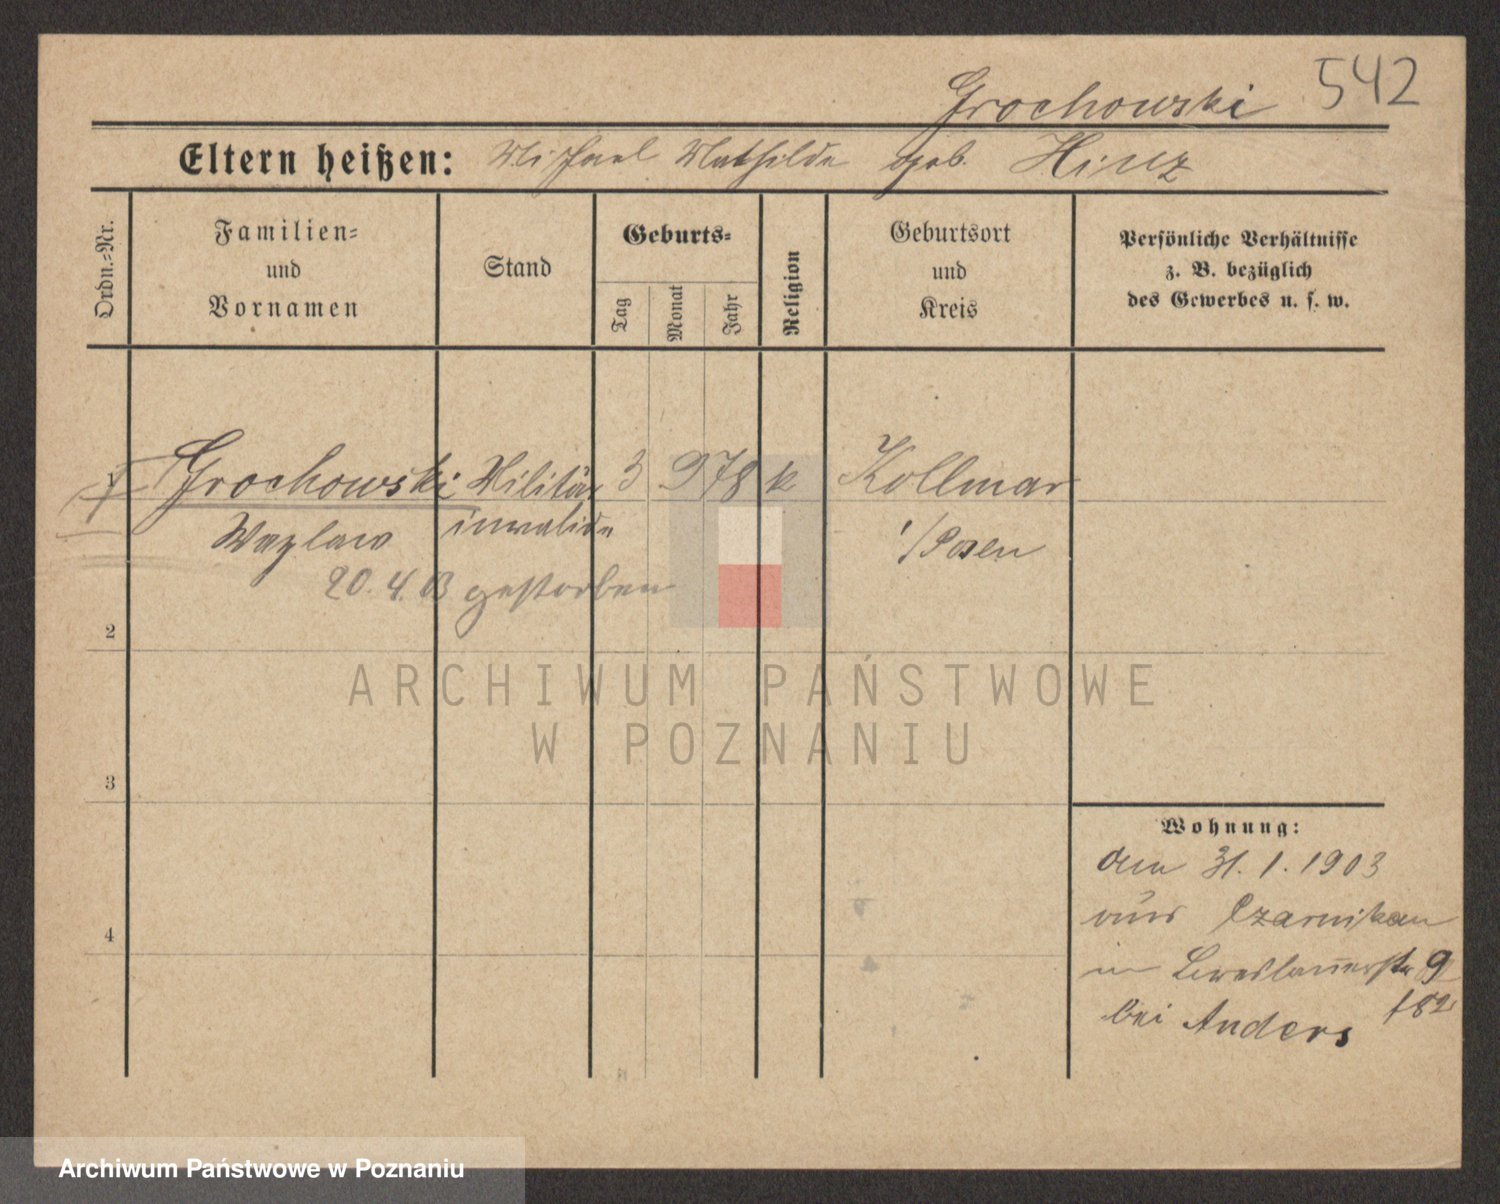 Grochowski 542
Eltern heißen: Michael Mathilde geb. Hinz
Ordn.=Nr.
Familien=
und
Vornamen
Stand
Geburts=
Tag
Monat
Jahr
Religion
Geburtsort
und
Kreis
Persönliche Verhältnisse
z. B. bezüglich
des Gewerbes u. s. w.
1 Grochowski Militär 3 9 78 k Kollmar
Wazlaw invalide i/Posen
20.4.03 gestorben
2
3
4
Wohnung:
den 31.1.1903
aus Czarnikau
in 9
bei Anders f82
ARCHIWUM PAŃSTWOWE
W POZNANIU
Archiwum Państwowe w Poznaniu